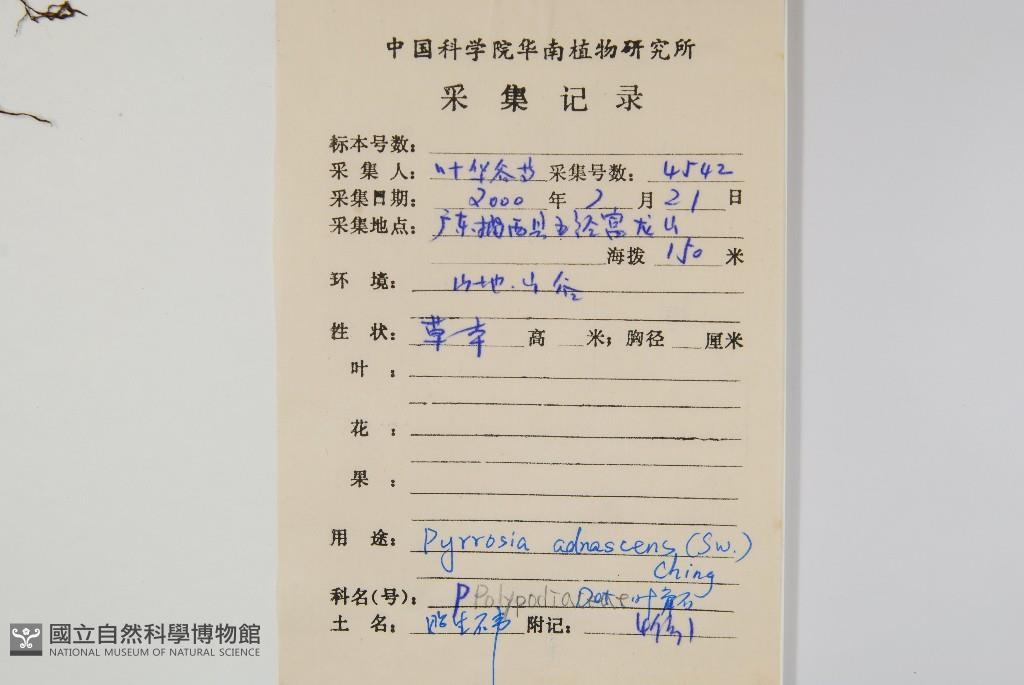 中国科学院华南植物研究所
采集记录
标本号数：
采集人：叶华谷 采集号数：4542
采集日期：2000年7月21日
采集地点：广东揭西县五经富龙山
海拨 150 米
环境：山地.山谷
性状：草本 高 米；胸径 厘米
叶：
花：
果：
用途：Pyrrosia adnascens (Sw.)
Ching
科名(号)：P Polypodiaceae Det.
土名：贴生石韦 附记：
國立自然科學博物館
NATIONAL MUSEUM OF NATURAL SCIENCE